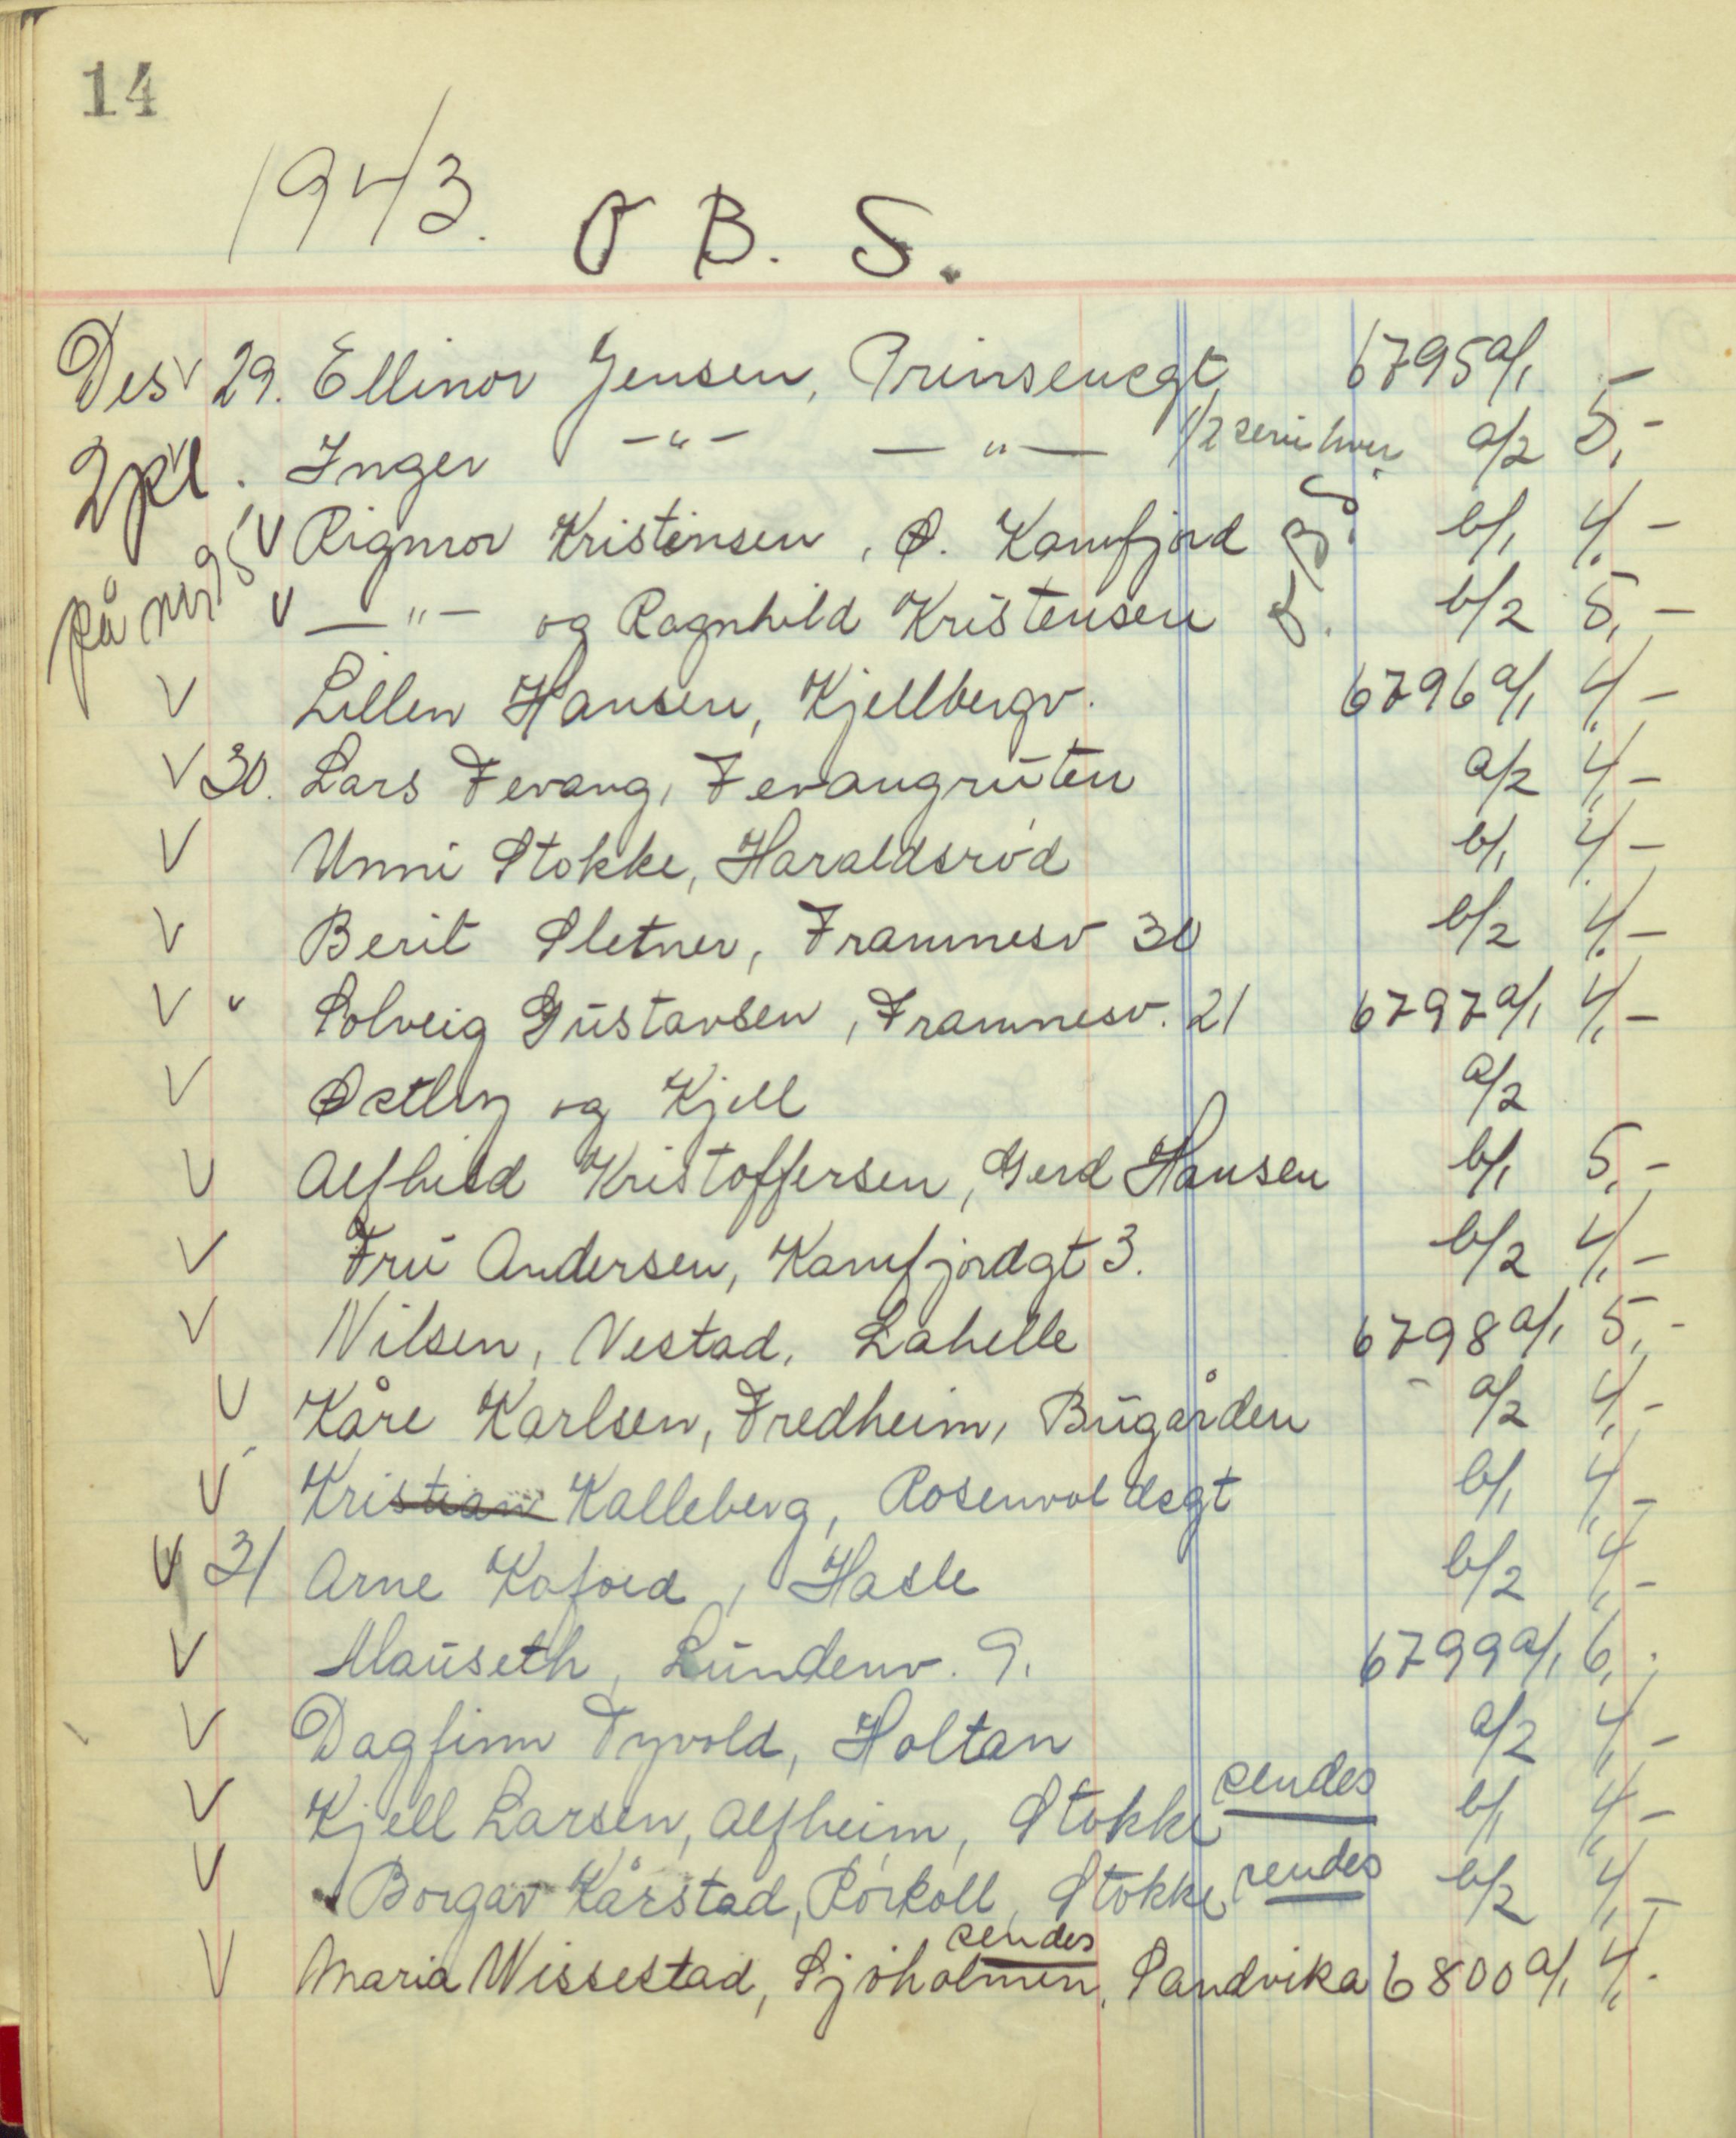 14
1943. O B. S.
Des v 29. Ellinor Jensen, Prinsensgt 6795 a/1 -
2 pl. Inger -"- -"- 1/2 serie hver a/2 5,-
på neg v Rigmor Kristensen, Ø. Kamfjord b/1 4,-
v -"- og Ragnhild Kristensen O.B.S. b/2 5,-
v Lillen Hansen, Kjellbergv. 6796 a/1 4,-
v 30. Lars Fevang, Fevangruten a/2 4,-
v Unni Stokke, Haraldsrød b/1 4,-
v Berit Sletner, Framnesv 30 b/2 4,-
v " Solveig Gustavsen, Framnesv. 21 6797 a/1 4,-
v Østby og Kjell a/2
v Alfhild Kristoffersen, Gerd Hansen b/1 5,-
v Fru Andersen, Kamfjordgt 3. b/2 4,-
v Nilsen, Vestad, Lahelle 6798 a/1 5,-
v Kåre Karlsen, Fredheim, Bugården a/2 4,-
v Kristian Kalleberg, Rosenvoldsgt b/1 4,-
v 31 Arne Kafoed, Hasle b/2 4,-
v Mauseth, Lundenv. 9. 6799 a/1 6,-
v Dagfinn Tyvold, Holtan a/2 4,-
v Kjell Larsen, Alfheim, Stokke sendes b/1 4,-
v Borgar Kårstad, Rørkoll, Stokke sendes b/2 4,-
sendes
v Maria Wissestad, Sjøholmen, Sandvika 6800 a/1 4,-